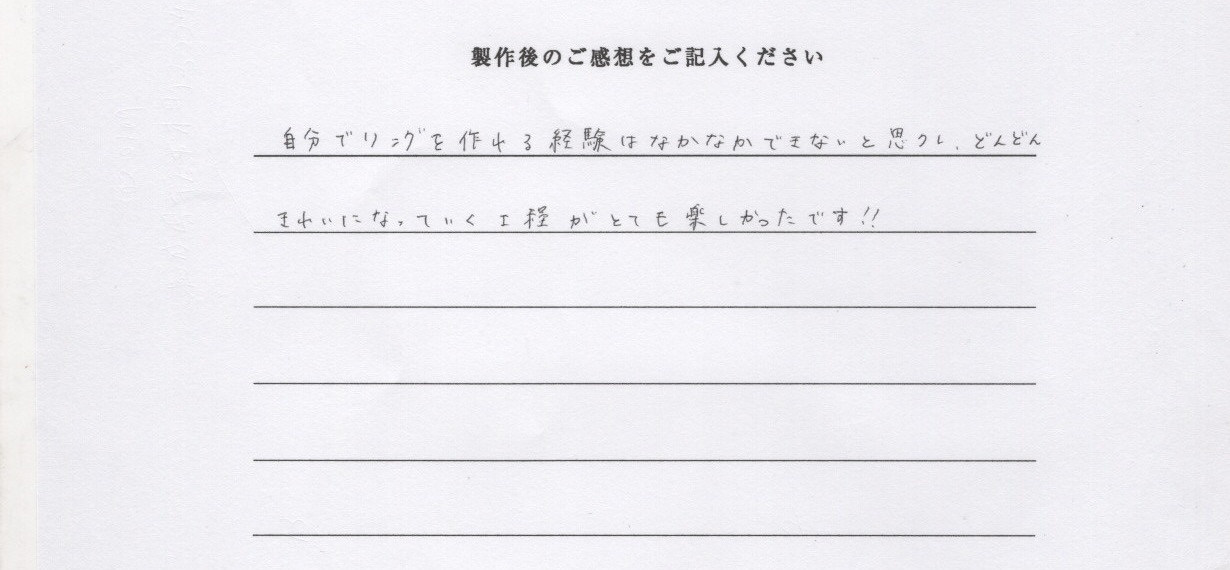 製作後のご感想をご記入ください
自分でリングを作れる経験はなかなかできないと思うし、どんどん
きれいになっていく工程がとても楽しかったです!!